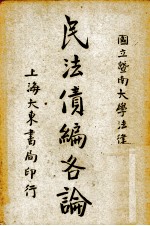 國立暨南大學法律
民法債編各論
上海大東書局印行